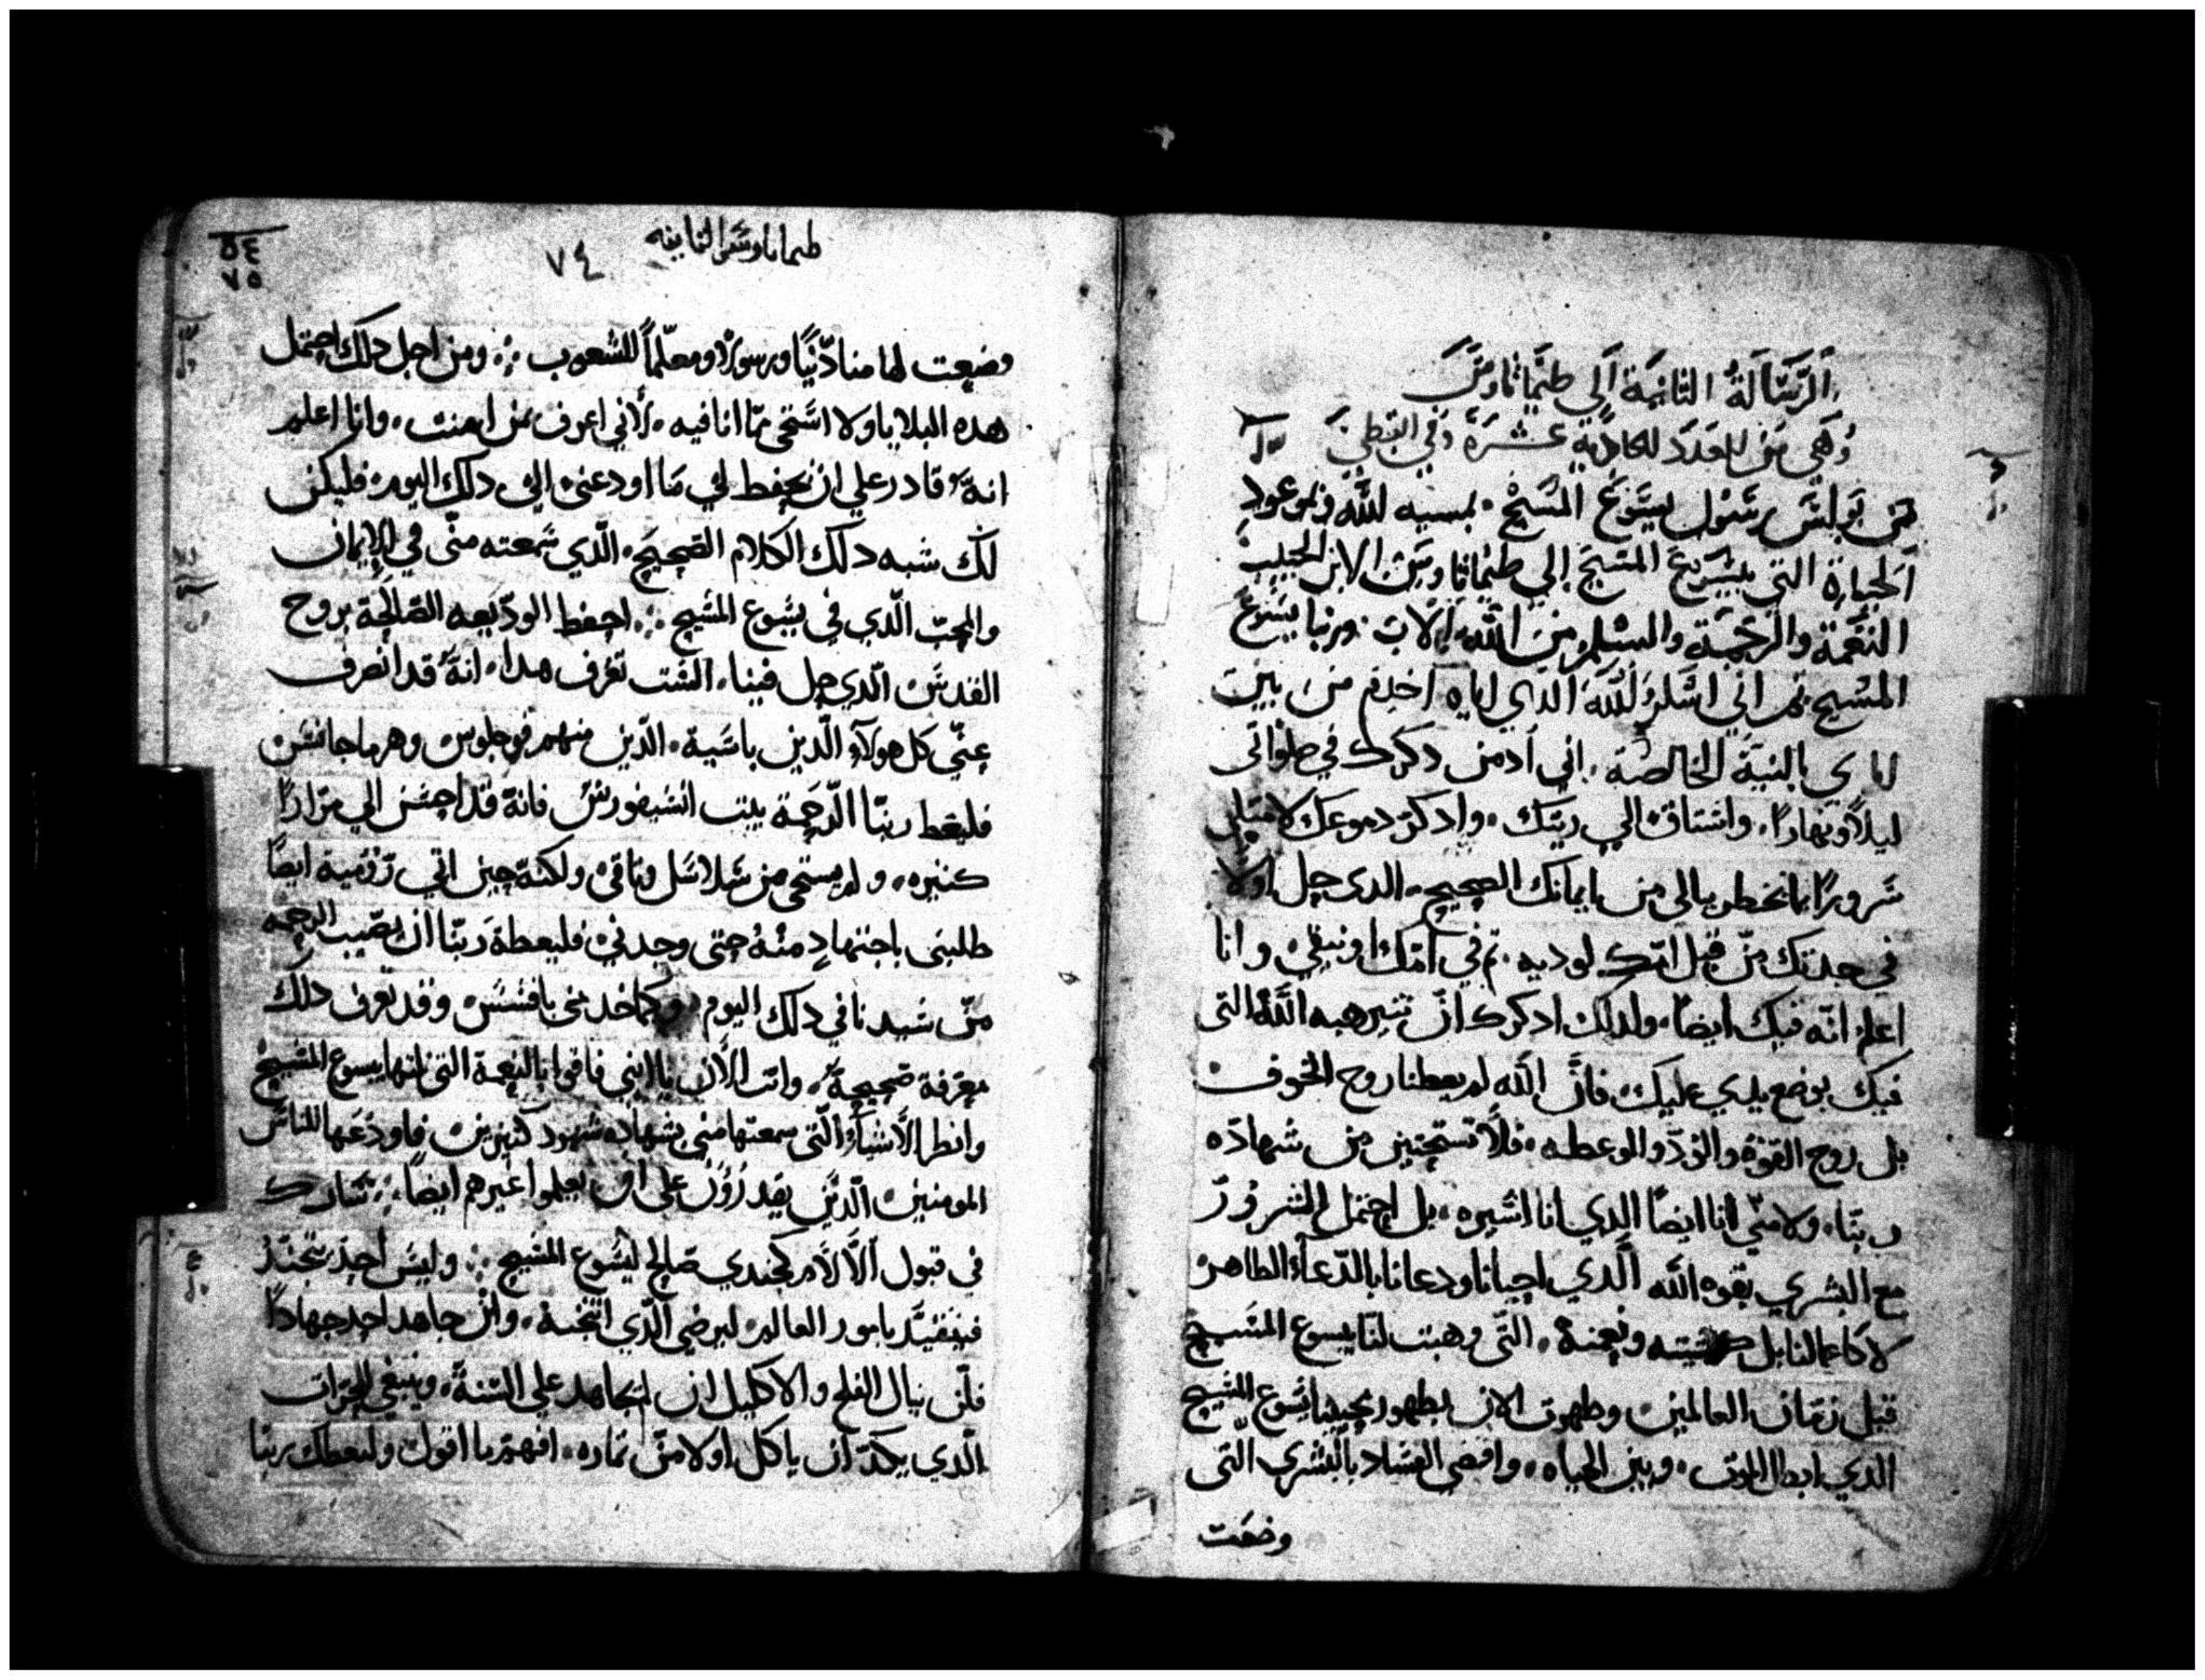 الرسَالةُ الثانيَة اَلي طيمَاثاوسَ
وَهي من العَدَد الحادية عشرَة وَفي القبطي
من بَولسَ رسَول يسَوعَ المسَيح ٠ بمسيه الله وَلموعود
اَلحياة التي بيسَوعَ المسَيح إلي طيمَاثاوسَ الابن الحبيب
النعَمة والرحَمة والسَلم من الله الاب وربنا يسَوعَ
المسَيح تم اني اشكر لله الدي اياه اخدم من بين
اباي بالنيَة الخالصَة ٠ اني اَدمن دكرك في صلواتي
ليلاً ونهارًا ٠ واشتاق الي ريتك ٠ وادكر دموعك لامتلي
سَرورًا بما يخطر ببالي من ايمانك الصحيح ٠ الدي حل اولا
في جدتك من قبل امك لوديه ٠ تم في اَمك اونيقي وانا
اعلم انّه فيك ايضاً ٠ ولدلك ادكرك انّ تتير هبه الله التي
فيك بوضع يدي عليك ٠ فانّ الله لم يعطنا روح الخوف
بل روح القوّة والودّ والموعظه ٠ فلا تستحيين من شهادّه
ربنّا ٠ ولا منّي انا ايضاً الدي انا اسَيره ٠ بل احتمل الشرورّ
مع البشري بقوه الله الّدي احيانا ودعانا بالدّعاء الطاهر
لا كاعمالنا بل كمشيته ونعمته ٠ التّي وهبت لنا بيسوع المسَيح
قبل زمَان العالمين وظهرت الان بظهور محيينا يسَوع المسَيح
الدي ابطل الموت ٠ وبين الحياه ٠ وافضي الفسَاد بالبشري التّي
وضعَت
طيماتاوسَ التانيه
٧٤
٥٤
٧٥
وضعت لها مناديًا ورسولاً ومعلّماً للشعوب ∴ ومن اجل دلك احتمل
هده البلايا ولا اسَتحي ممّا انا فيه ٠ لأني اعرف بمن امنت ٠ وانا اعلم
انهُ قادر علي ان يحفط لي مَا اودعني الي دلك اليوم فليكن
لَك شبه دلك الكلام الصَحيحَ ٠ الّدي سَمعته منّي في الإيمان
والحبّ الّدي في يسَوع المسَيح ∴ احفط الوديَعه الصَالحَة بروح
القدسَ الّدي حل فينا ٠ السَت تعَرف هدا ٠ انهَ قد انصرف
عنّي كل هولآء الّدين باسَية ٠ الدّين منهم فوجلوس وهرماجانسَ
فليعَط ربنّا الرّحَمة بيت انسَيفورسَ فانهَ قد احسَن الي مرّارًا
كتيره ٠ ولم يستحي من سَلاسَل وتاقي ولكنهّ حين اتي رَوَمية ايضًا
طلبني باجتهادٍ منهُ حتي وجدني فليعطهَ رَبنّا ان يصَيب الرحمه
منّ سَيدنا في دلك اليوم وكما خدمني بافسسَ وقد تعرف دلك
معَرفة صَحيحة ٠ وانت الأن يا ابني فاقوا بالنعَمة التي نلتها بيسوع المسَيح
وانظر الأشَياءَ التّي سمعتها مني بشهاده شهود كتيرين فاودعَها للناسَ
المومنين الّديَن يقدرُوُنَ علي ان يعلموا غيرهم ايضاً ∴ شارك
في قبول اَلالاَم كجندي صَالح ليسَوع المسَيح ∴ وليسَ احد يتجندُ
فيتقيدَ بامور العالم ليرضي الّدي انتخبه ٠ وانْ جاهد احد جهادًا
فلنّ ينال الفلح والاكليل ان لم يجاهد علي السَنةَ ٠ وينبغي للحرّاث
الّدي يكدّ ان ياكل اولا منّ تماره ٠ افهم ما اقول وليعطك ربنّا